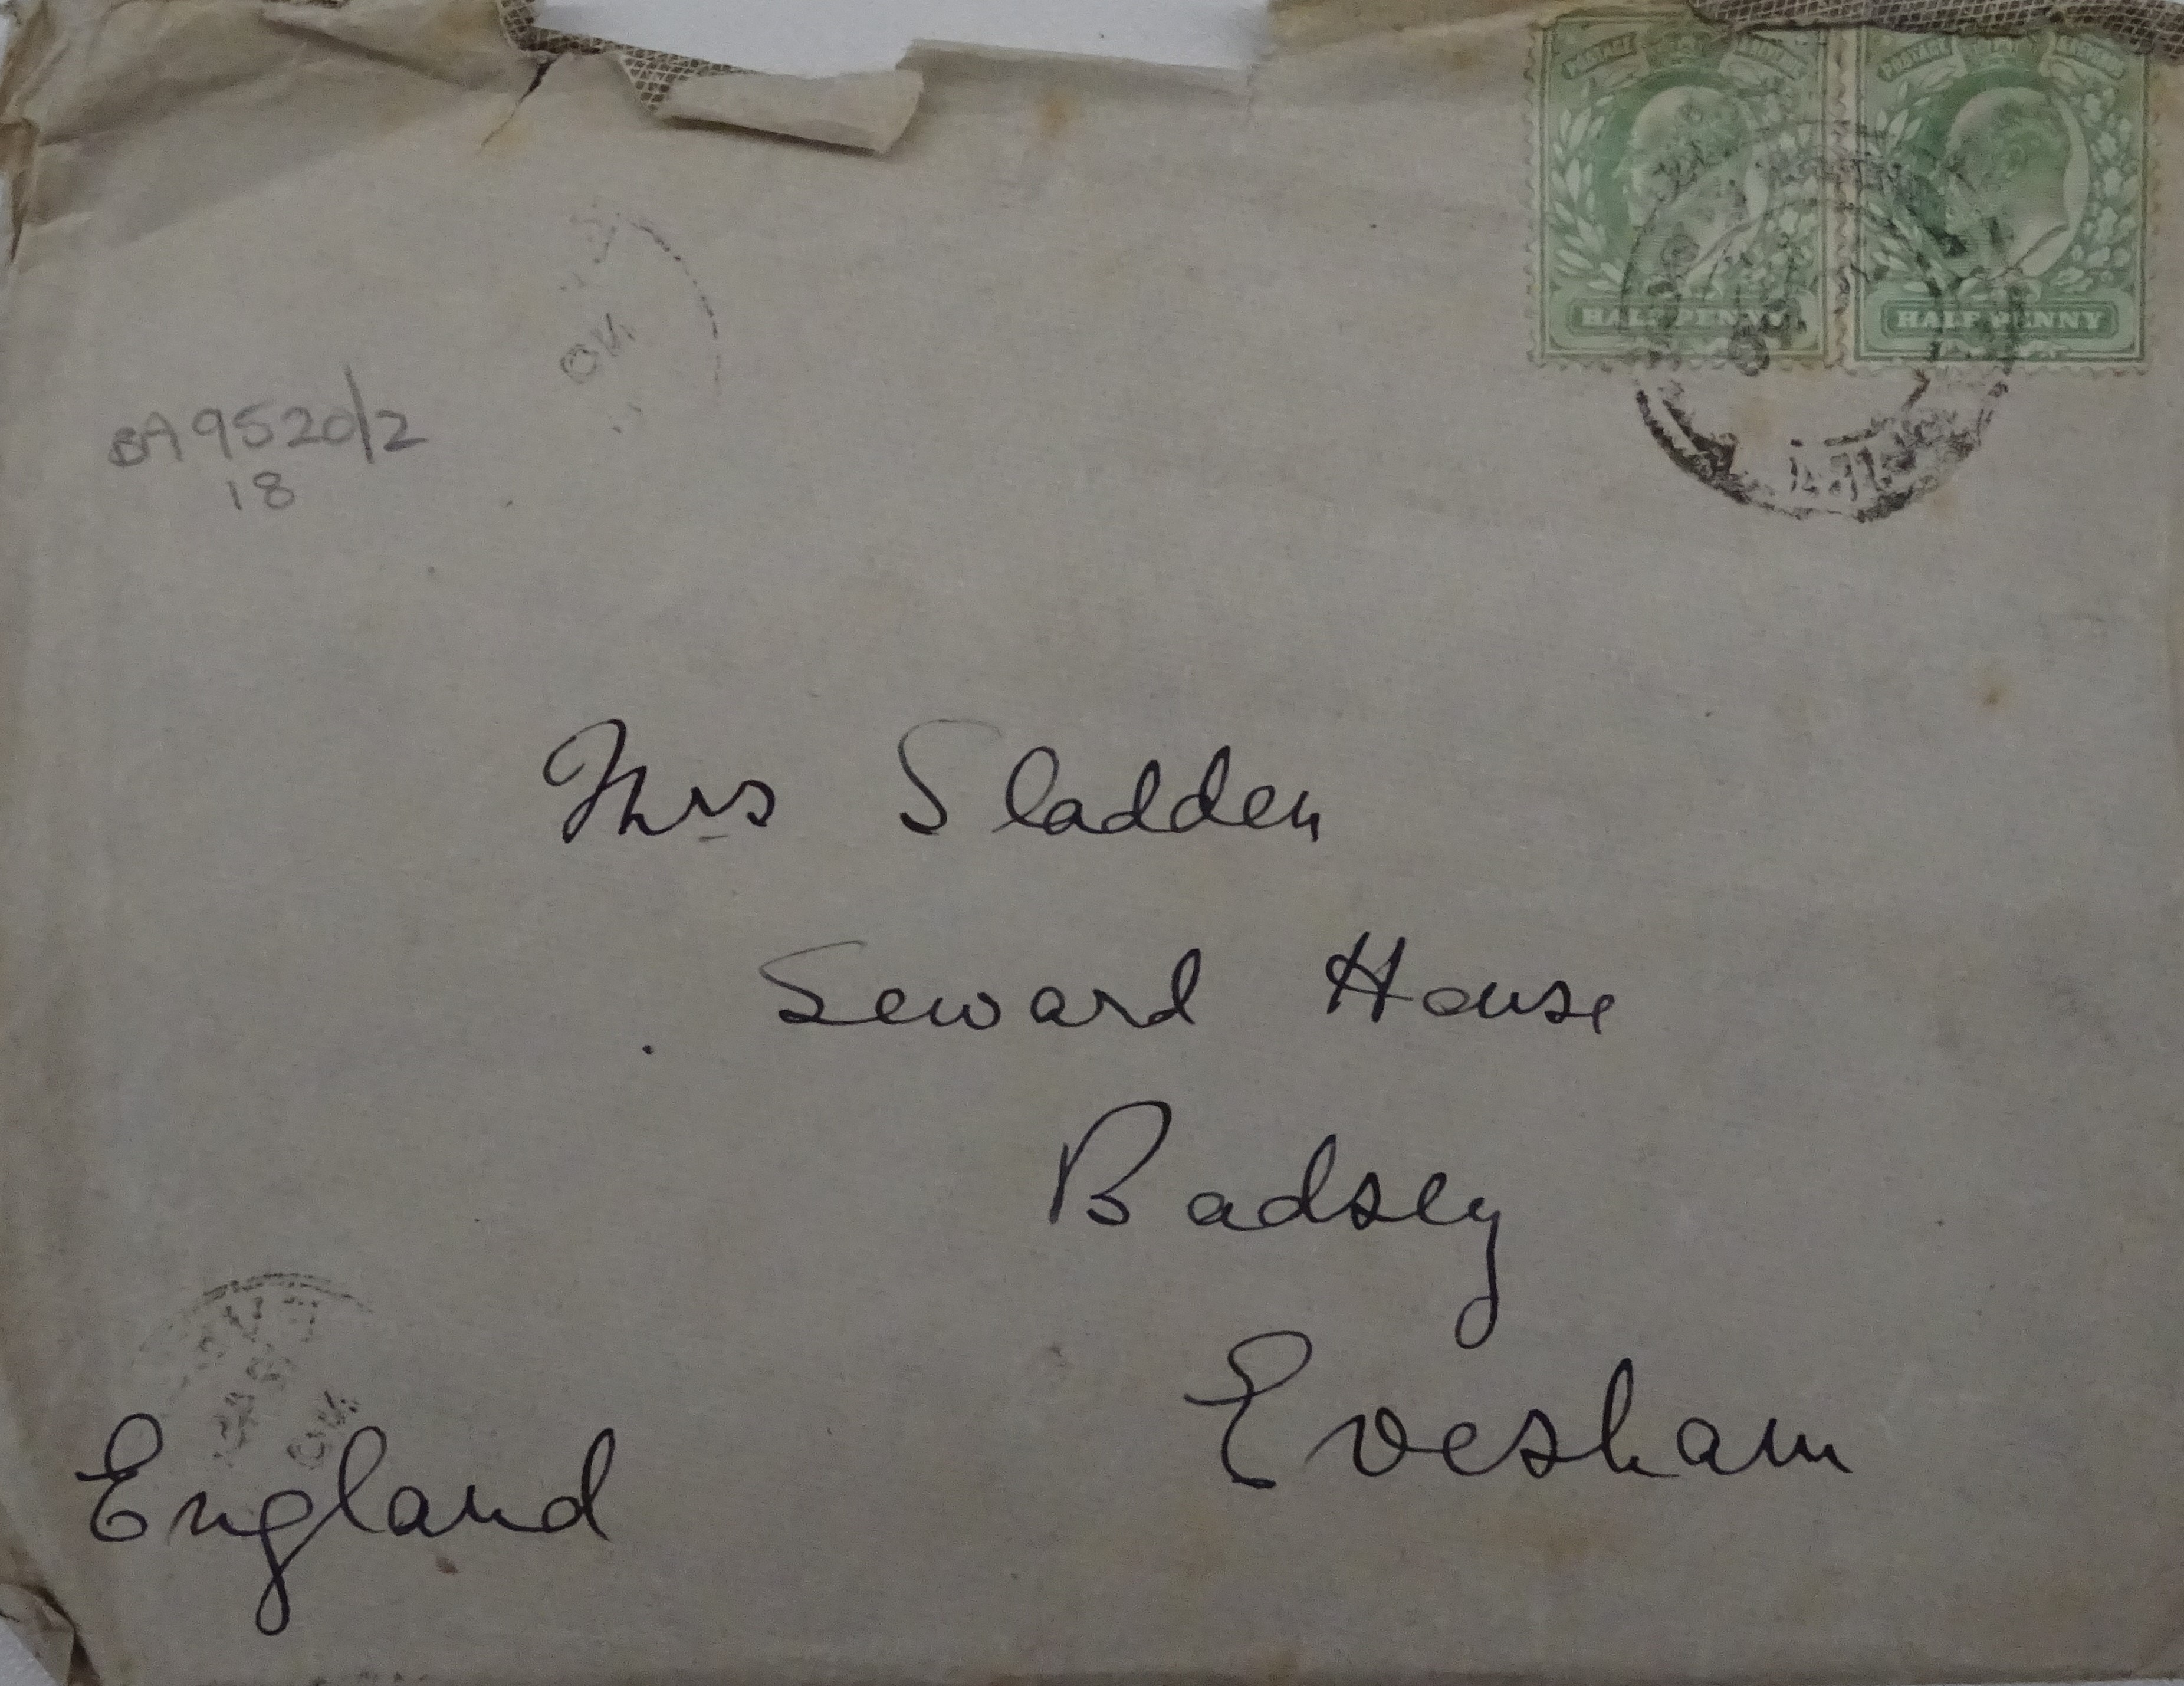 POSTAGE POSTAGE
HALF PENNY HALF PENNY
BA 9520/2
18
Mrs Sladden
Seward House
Badsey
Evesham
England